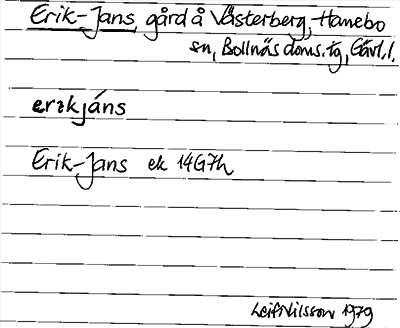 Erik-Jans, gård å Västerberg, Hanebo
sn, Bollnäs doms.tg, Gävl.l.
erikjáns
Erik-Jans ek 14G7h
Leif Nilsson 1979